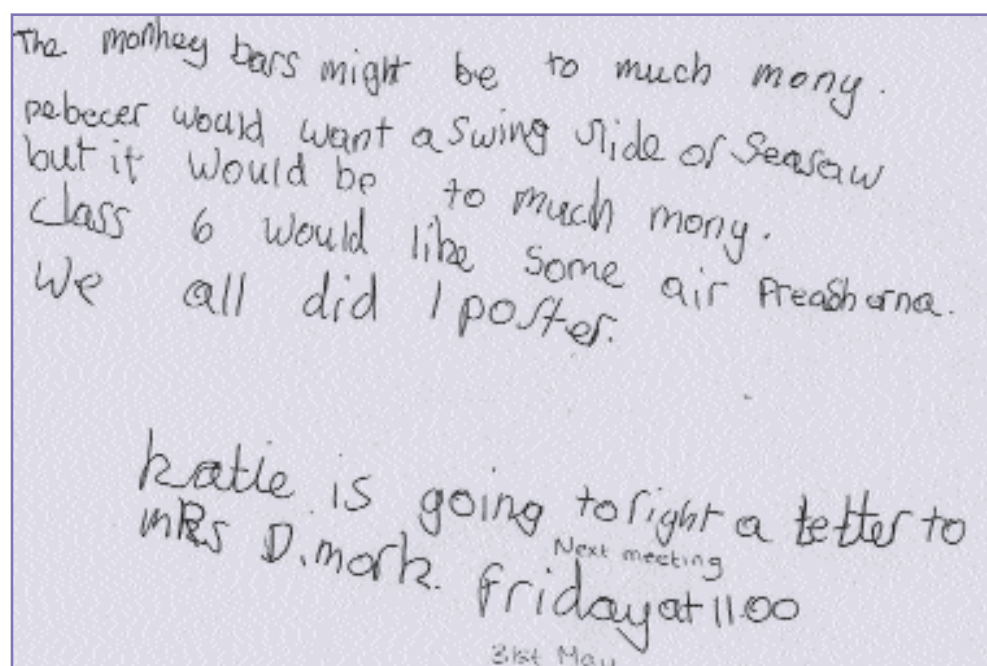 The monkey bars might be to much mony.
pebecer would want a swing slide or Seasaw
but it would be to much mony.
Class 6 would like some air
We all did 1 poster.
katie is going to right a letter to
mRs D. mark. friday at 11.00
Next meeting
31st May